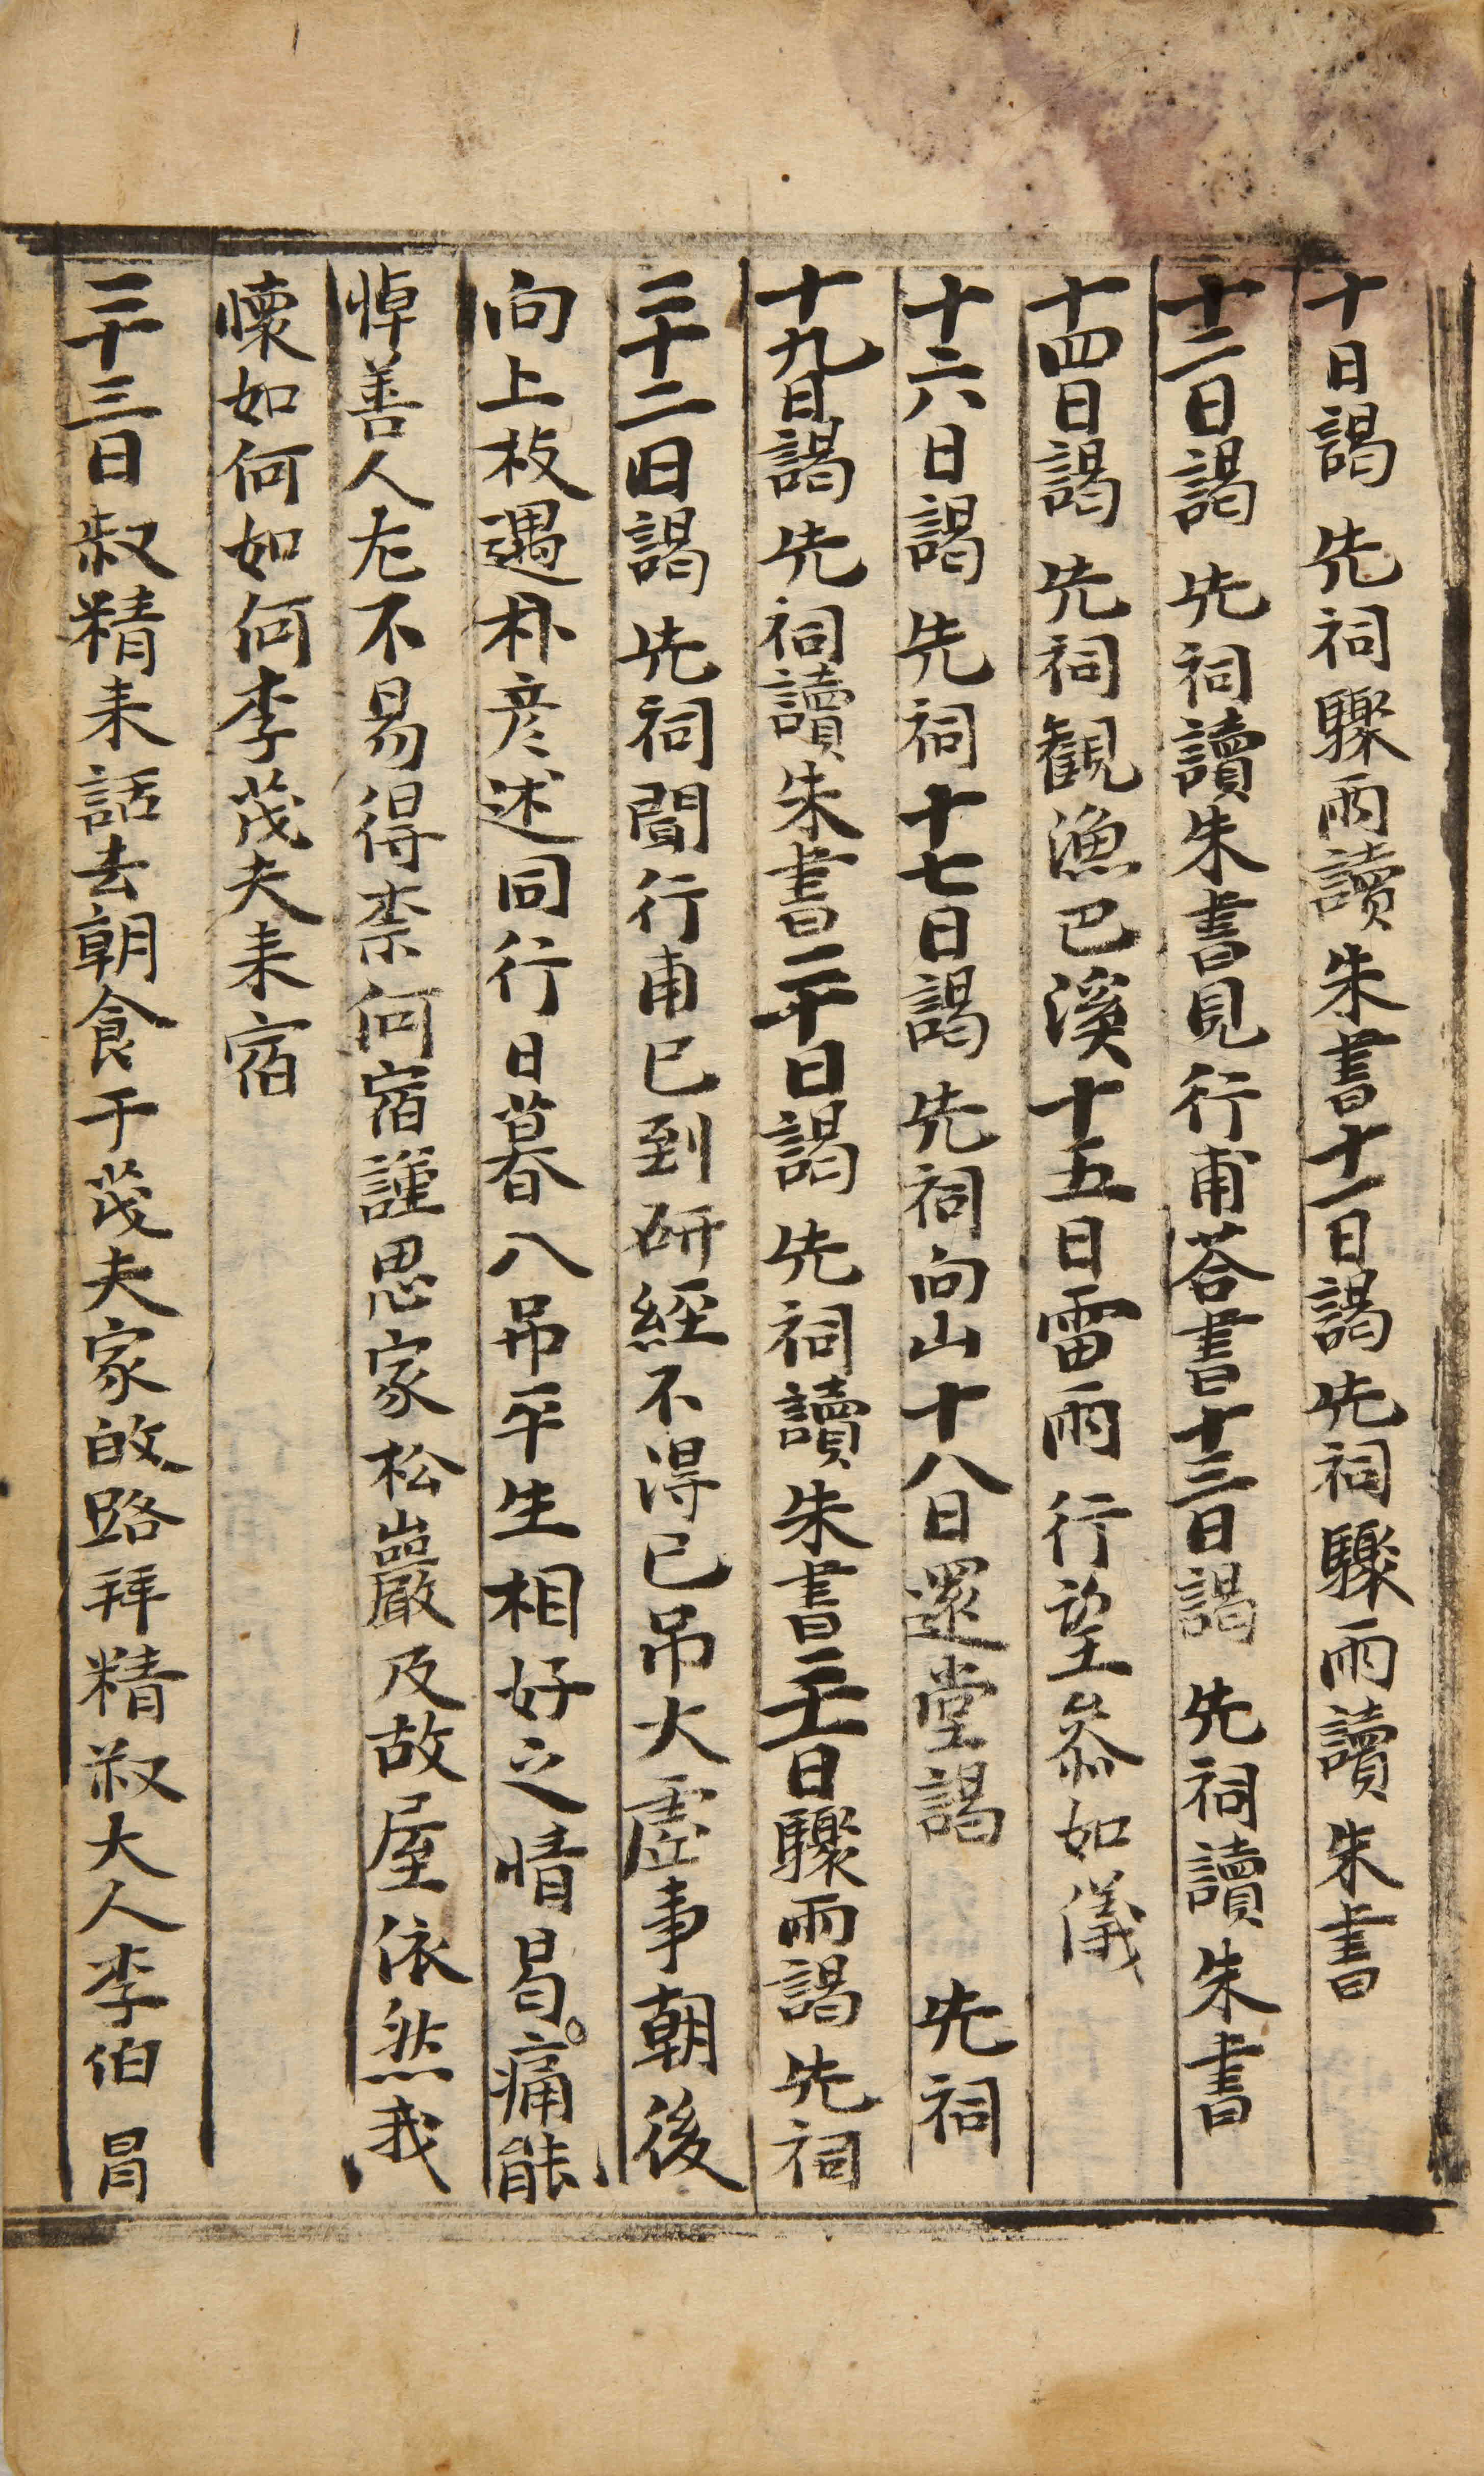 十日謁 先祠驟雨讀朱書十一日謁先祠驟雨讀朱書
十二日謁 先祠讀朱書見行甫荅書十三日謁 先祠讀朱書
十四日謁 先祠観漁巴溪十五日雷雨行望叅如儀
十六日謁 先祠十七日謁 先祠向山十八日還堂謁 先祠
十九日謁 先祠讀朱書二十日謁 先祠讀朱書二十一日驟雨謁 先祠
二十二日謁 先祠聞行甫已到硏經不得已吊大虛事朝後
向上枝遇朴彦述同行日暮入吊平生相好之情曷痛能
悼善人尤不易得柰何宿謹思家松巖及故屋依然我
懷如何如何李茂夫来宿
二十三日叔精来話去朝食于茂夫家啟路拜精叔大人李伯冐